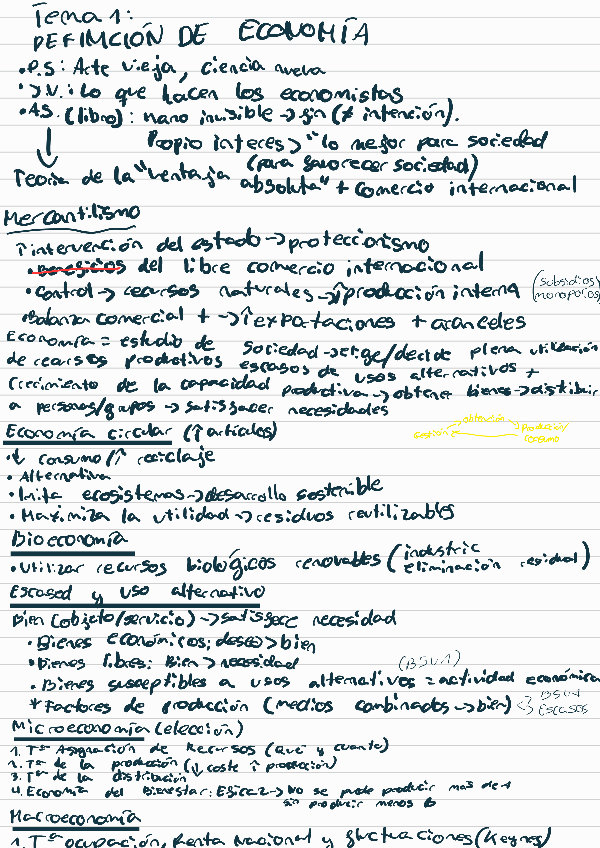 Tema 1:
DEFINICIÓN DE ECONOMÍA
• P.S: Arte vieja, ciencia nueva
• J.V.: Lo que hacen los economistas
• A.S. (libro): mano invisible → fin (≠ intención).
Propio interes > "lo mejor para sociedad
(para favorecer sociedad)
Teoría de la "ventaja absoluta" + comercio internacional
Mercantilismo
↑ intervención del estado → proteccionismo
• beneficios del libre comercio internacional
• Control → recursos naturales → ↑ producción interna (subsidios y
monopolios)
• Balanza comercial + → ↑ exportaciones + aranceles
Economía = estudio de sociedad → elige/decide plena utilización
de recursos productivos escasos de usos alternativos +
Crecimiento de la capacidad productiva → obtener bienes → distribuir
a personas/grupos → satisfacer necesidades
Economía circular (↑ artículos)
Producción/
Gestión consumo
• ↓ consumo/↑ reciclaje
• Alternativa
• Imita ecosistemas → desarrollo sostenible
• Maximiza la utilidad → residuos reutilizables
Bioeconomía
• Utilizar recursos biológicos renovables (industria
eliminación residual)
Escased y uso alternativo
Bien (objeto/servicio) → satisface necesidad
• Bienes económicos; deseo > bien
• Bienes libres: Bien > necesidad
(BSUA)
• Bienes susceptibles a usos alternativos = actividad económica
* Factores de producción (medios combinados → bien) <3 BSUA
Escasos
Microeconomía (elección)
1. Tª Asignación de Recursos (Qué y cuanto)
2. Tª de la producción (↓ coste ↑ producción)
3. Tª de la distribución
4. Economía del Bienestar: Eficaz → No se puede producir mas de A
sin producir menos B
Macroeconomía
1. Tª ocupación, Renta Nacional y fluctuaciones (Keynes)